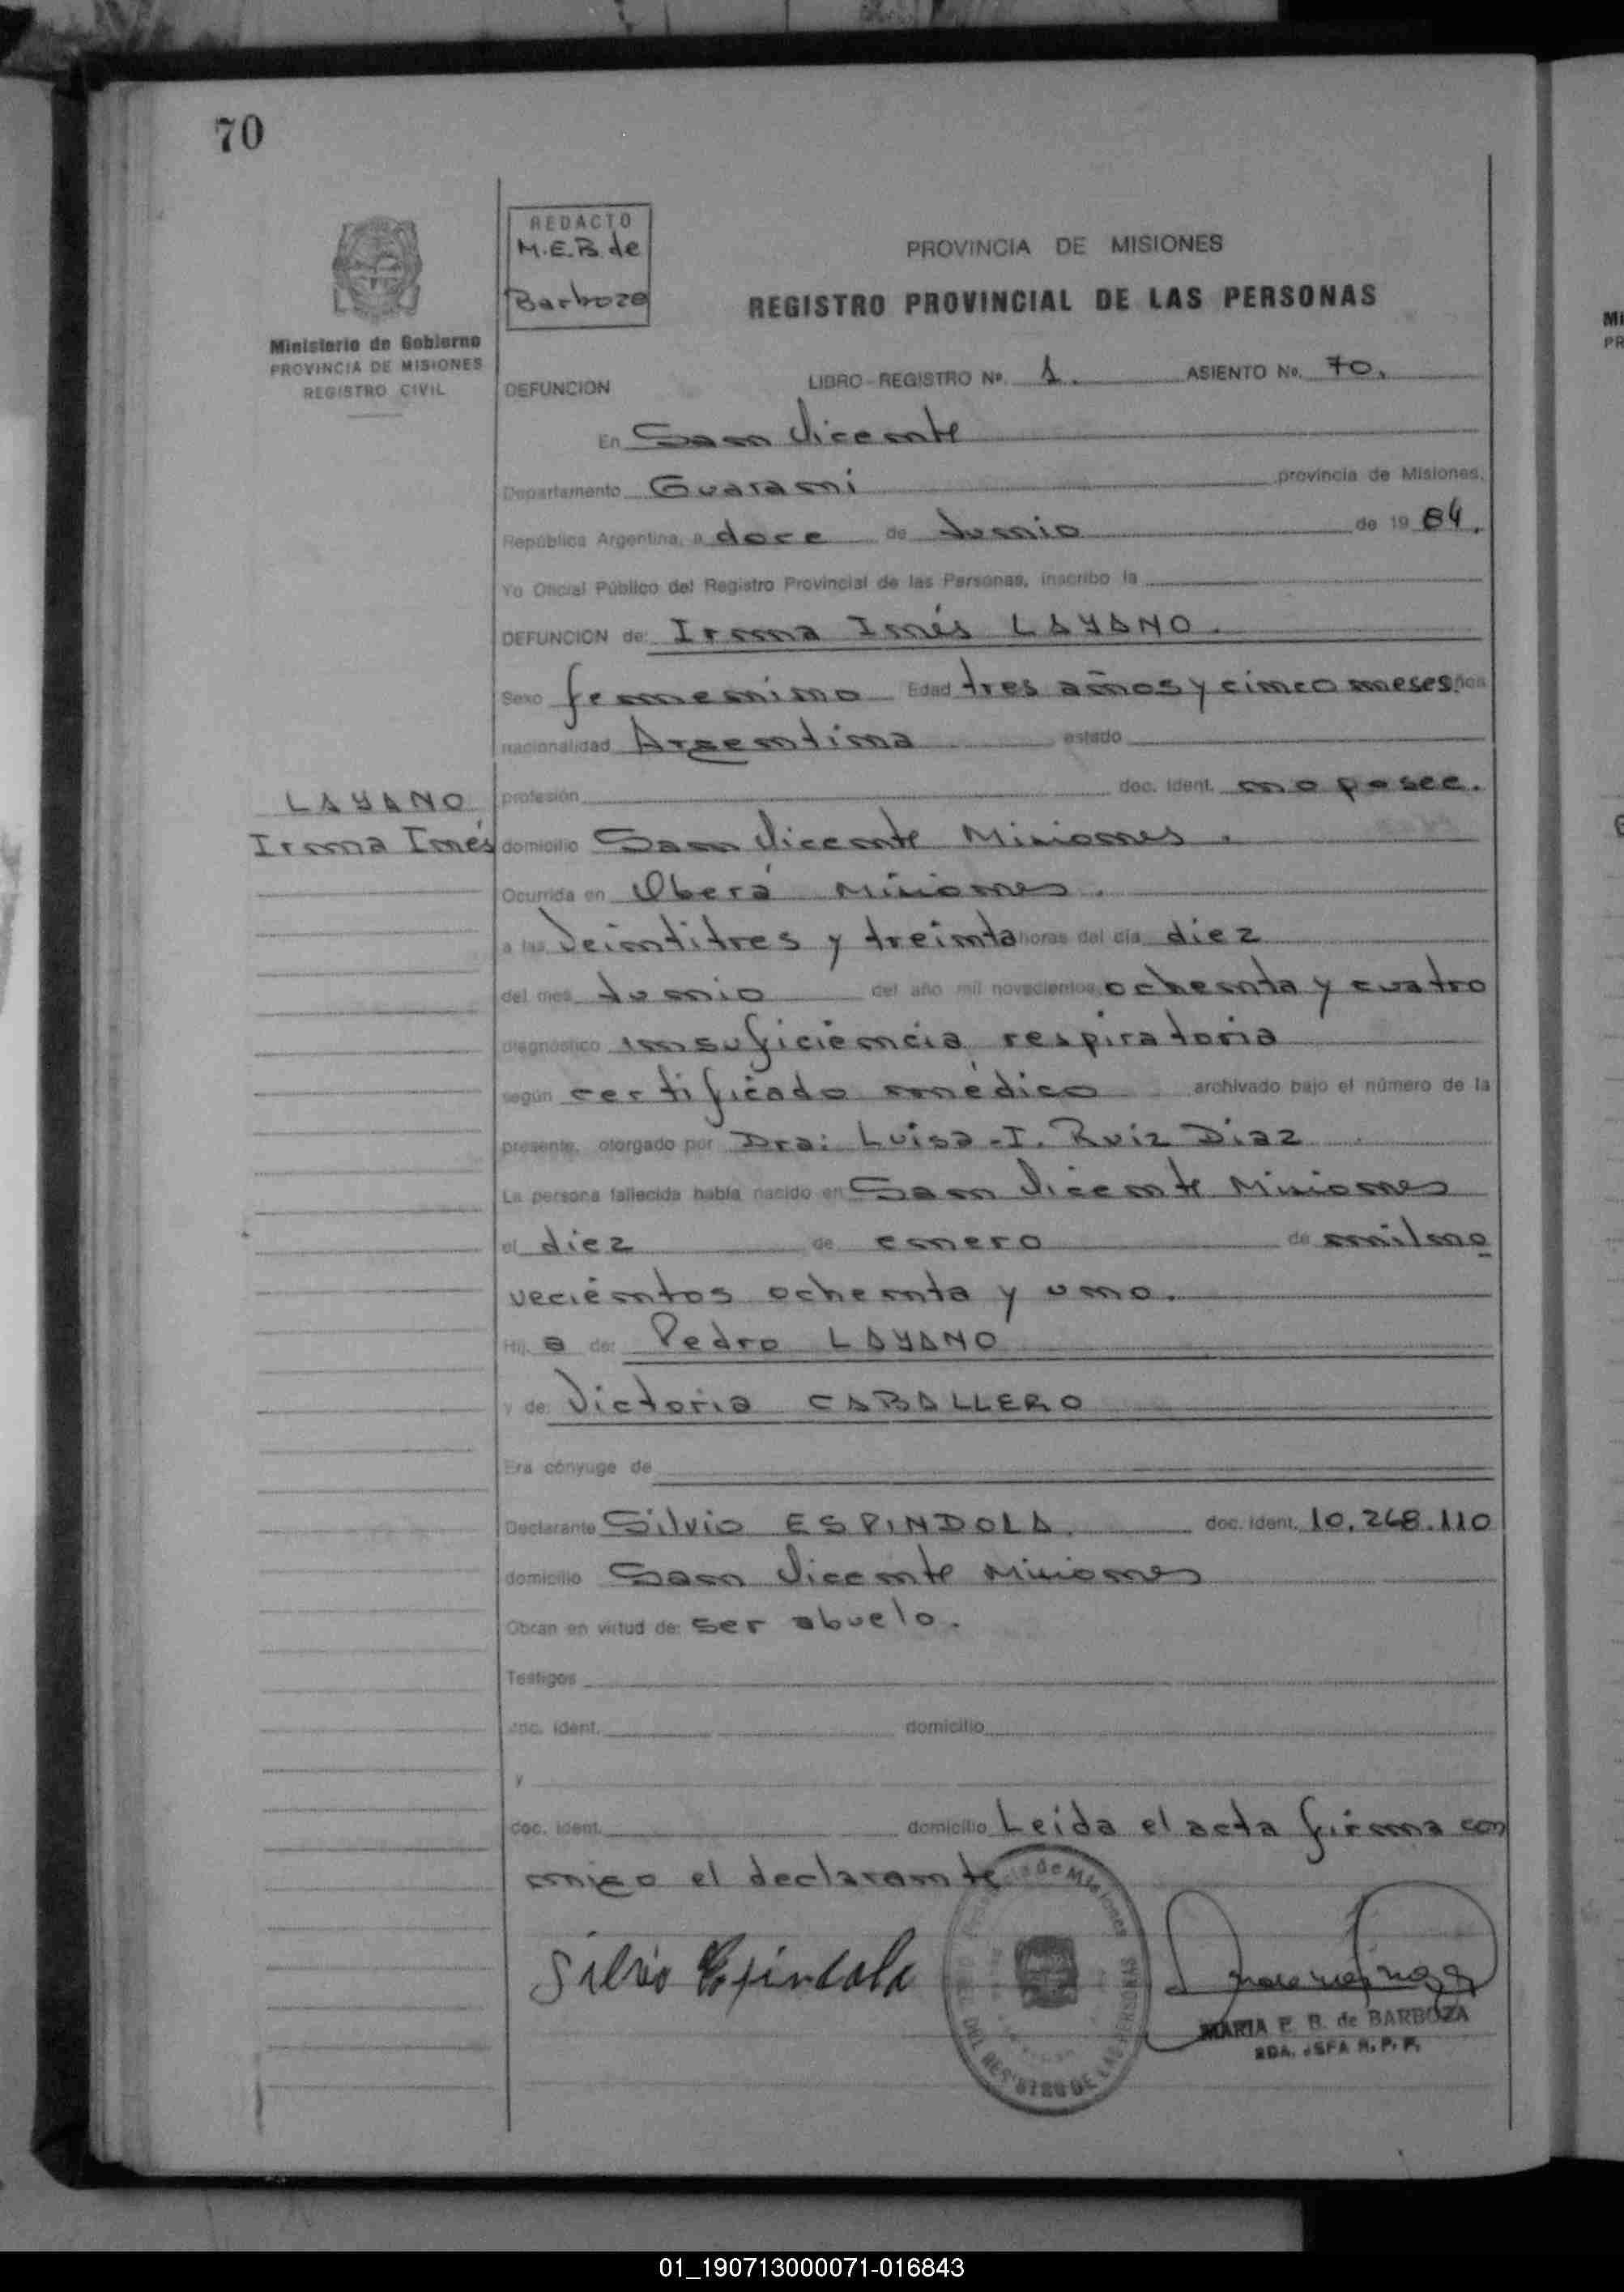 70
REDACTO
M.E.B. de
Barboza
PROVINCIA DE MISIONES
REGISTRO PROVINCIAL DE LAS PERSONAS
Ministerio de Gobierno
PROVINCIA DE MISIONES
REGISTRO CIVIL
DEFUNCION LIBRO-REGISTRO Nº. 1. ASIENTO Nº. 70.
En San Vicente
Departamento Guarani provincia de Misiones,
República Argentina, a doce de Junio de 19 84.
Yo Oficial Público del Registro Provincial de las Personas, inscribo la
DEFUNCION de: Irma Inés LAYANO.
Sexo femenino Edad tres años y cinco meses. años
nacionalidad Argentina estado
profesión doc. ident. no posee.
LAYANO
Irma Inés
domicilio San Vicente Misiones.
Ocurrida en Oberá Misiones.
a las Veintitres y treinta horas del día diez
del mes Junio del año mil novecientos ochenta y cuatro
diagnóstico insuficiencia respiratoria
según certificado médico archivado bajo el número de la
presente, otorgado por Dra: Luisa I. Ruiz Diaz
La persona fallecida había nacido en San Vicente Misiones
el diez de enero de mil no
vecientos ochenta y uno.
Hij a de: Pedro LAYANO
y de: Victoria CABALLERO
Era cónyuge de
Declarante Silvio ESPINDOLA doc. ident. 10.268.110
domicilio San Vicente Misiones
Obran en virtud de: ser abuelo.
Testigos
doc. ident. domicilio
y
doc. ident. domicilio Leida el acta firma con
migo el declarante
Silvio Espindola
Provincia de Misiones
DEL REGISTRO DE LAS PERSONAS
MARIA E. B. de BARBOZA
2DA. JEFA R. P. P.
01_190713000071-016843